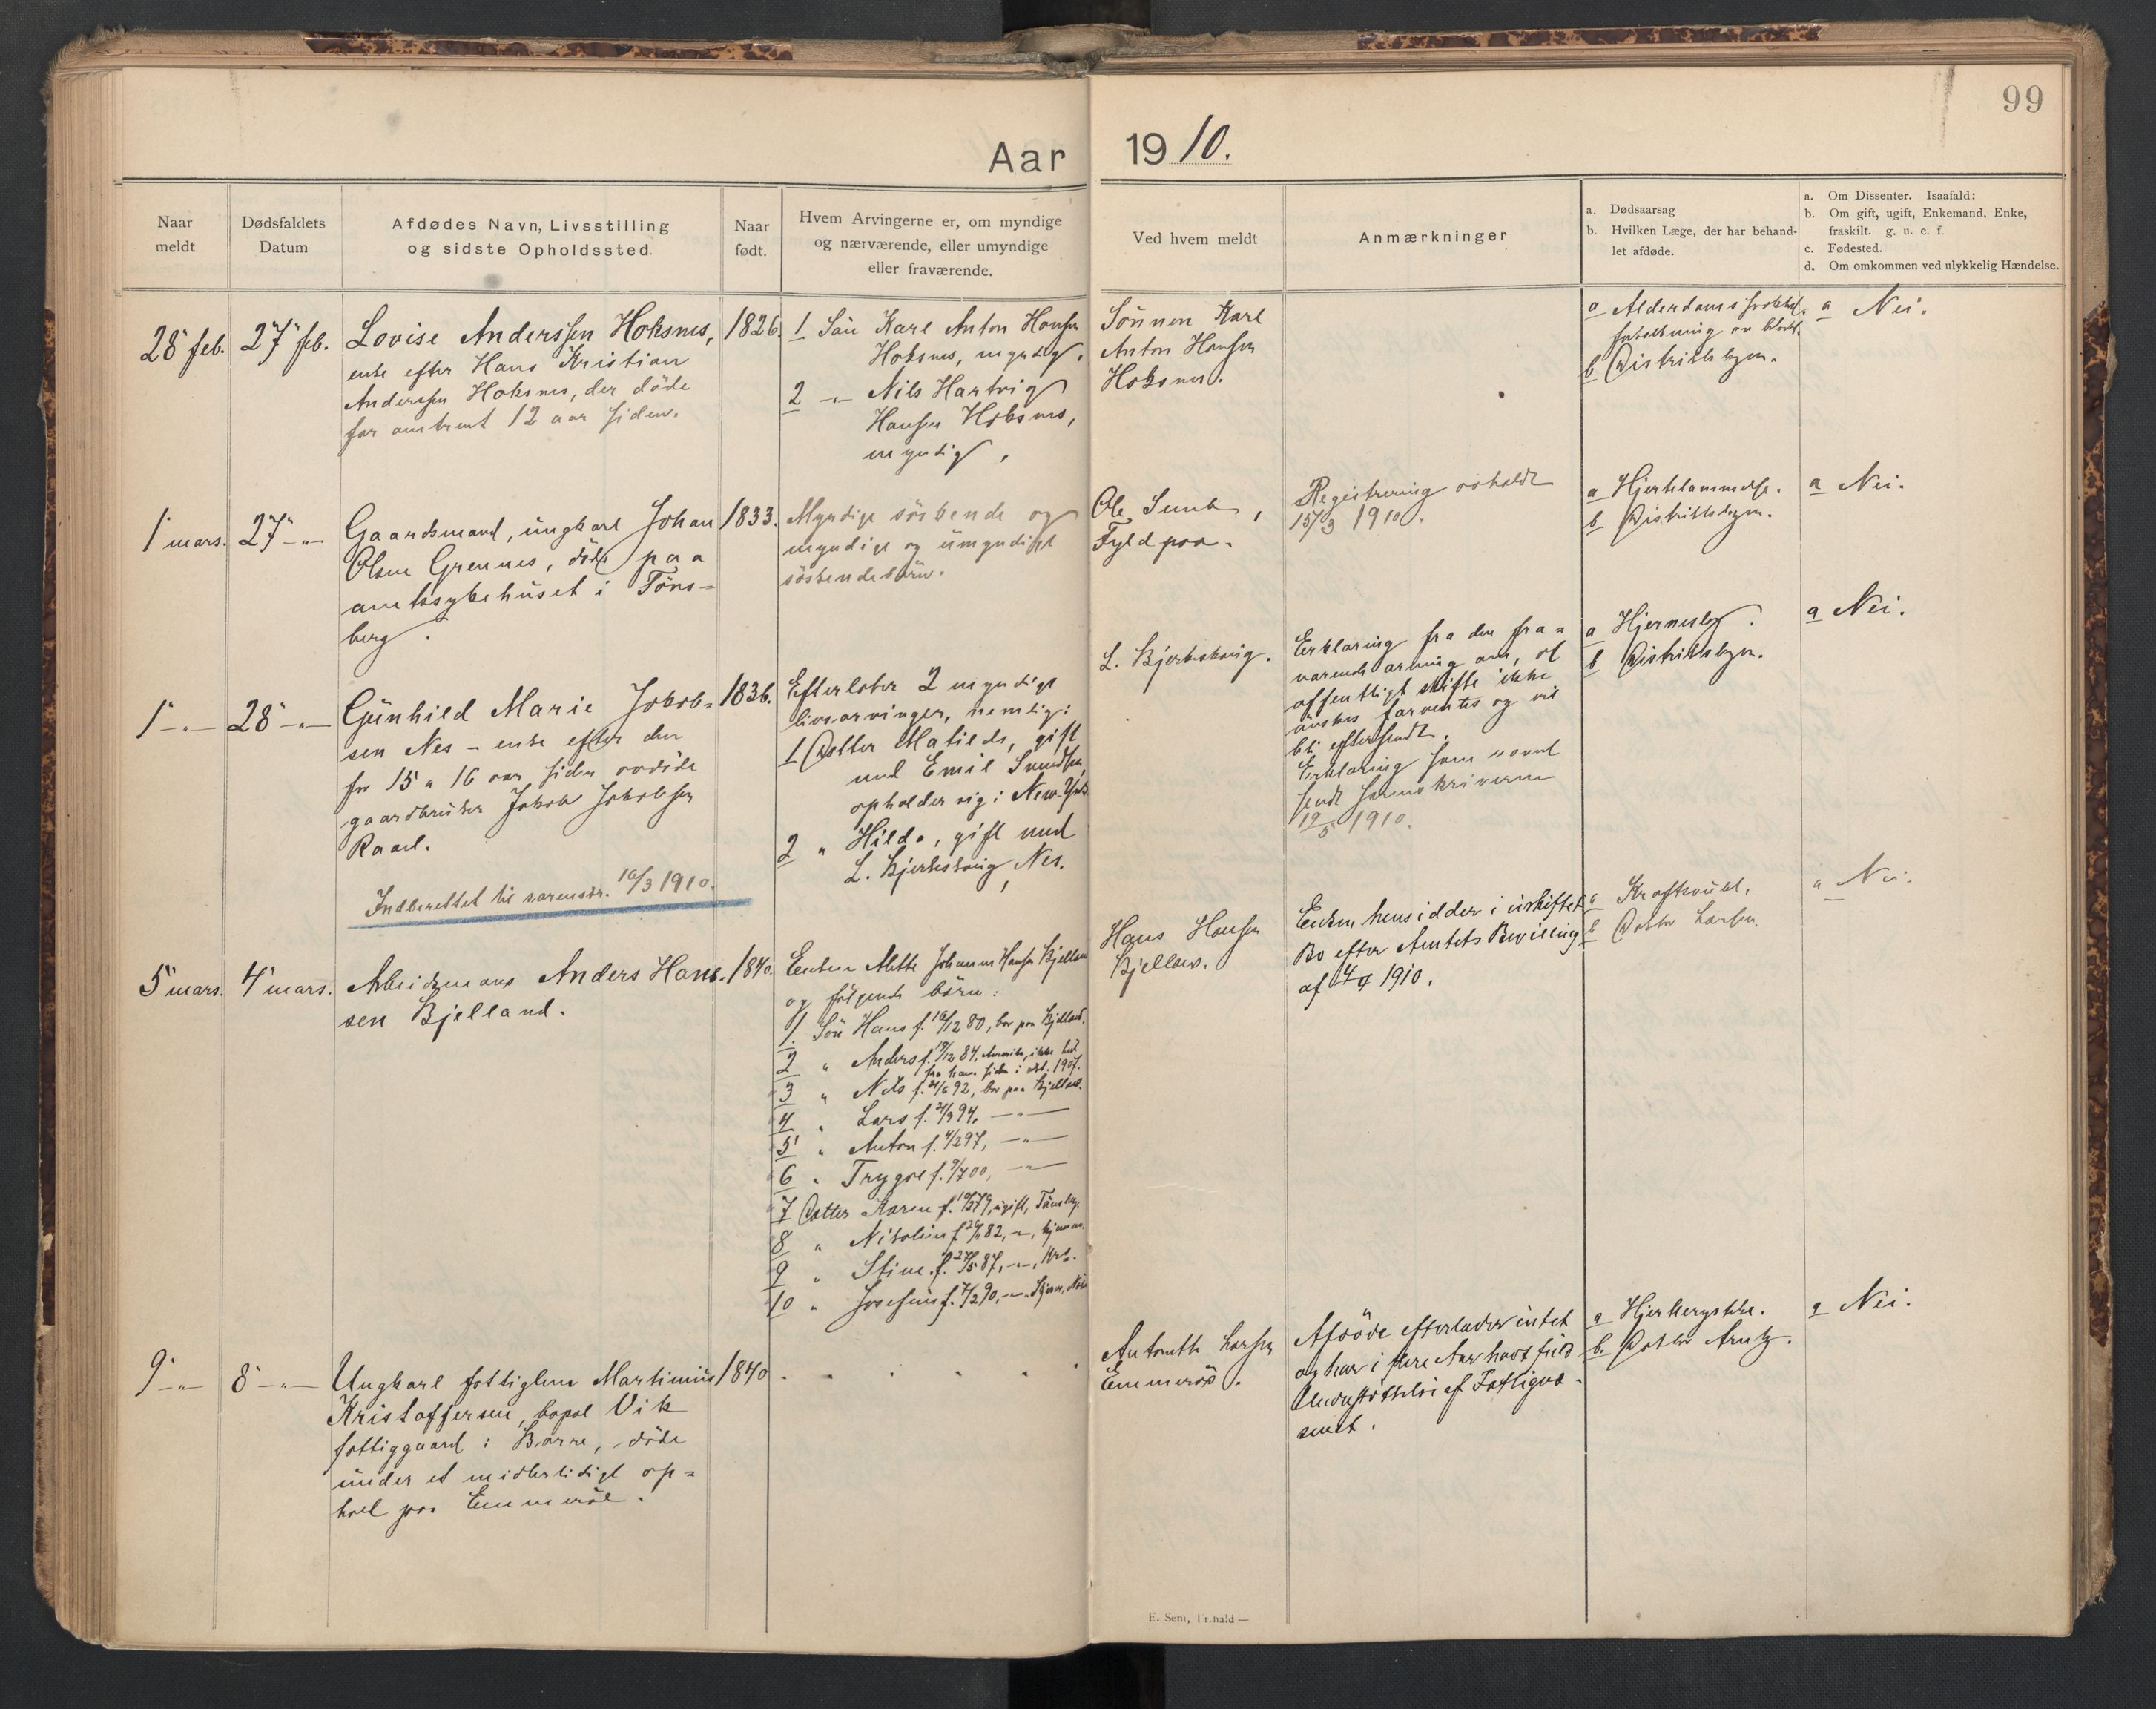 99
Aar 1910.
Naar
meldt
Dødsfaldets
Datum
Afdødes Navn, Livsstilling
og sidste Opholdssted.
Naar
født.
Hvem Arvingerne er, om myndige
og nærværende, eller umyndige
eller fraværende.
Ved hvem meldt
Anmærkninger
a. Dødsaarsag
b. Hvilken Læge, der har behand-
let afdøde.
a. Om Dissenter. Isaafald:
b. Om gift, ugift, Enkemand, Enke,
fraskilt. g. u. e. f.
c. Fødested.
d. Om omkommen ved ulykkelig Hændelse.
28 feb.
27 feb.
Lovise Anderssen Hoksnes,
enke efter Hans Kristian
Anderssen Hoksnes, der døde
for omtrent 12 aar siden.
1826.
1 Søn Karl Anton Hansen
Hoksnes, myndig.
2 -"- Nils Hartvig
Hansen Hoksnes,
myndig.
Sønnen Karl
Anton Hansen
Hoksnes.
a Alderdoms
b Distriktslægen.
a Nei.
1 mars.
27 -"-
Gaardmand, ungkarl Johan
Olsen Grennes, døde paa
amtssykehuset i Tøns-
berg.
1833.
Myndige søskende og
myndige og umyndige
søskendebørn.
Ole Sunde,
Fyldpaa.
Registrering avholdt
15/3 1910.
a Hjertelammelse.
b Distriktslægen.
a Nei.
1 -"-
28 -"-
Gunhild Marie Jakob-
sen Nes - enke efter den
for 15 a 16 aar siden avdøde
gaardbruker Jakob Jakobsen
Raael.
Indberettet til sorenskr. 10/3 1910.
1836.
Efterlater 2 myndige
livsarvinger, nemlig:
1 Datter Matilde, gift
med Emil Svendsen,
opholder sig i New-York
2 " Hilda, gift med
L. Bjerkeskaug, Nes.
L. Bjerkeskaug.
Erklæring fra den fra-
værende arving om, at
offentligt skifte ikke
ønskes forventes og vil
bli eftersendt.
Erklæring som ovent
sendt sorenskriveren
19/5 1910.
a Hjerneslag.
b Distriktslægen.
a Nei.
5 mars.
4 mars.
Arbeidsmand Anders Han-
sen Bjelland.
1840.
Enken Mette Johanne Hansen Bjelland
og følgende børn:
1. Søn Hans f. 10/12 80, bor paa Bjelland.
2 " Anders f. 19/12 84, Amerika, ikke hørt
fra ham siden i okt. 1907.
3 " Nils f. 21/6 92, bor paa Bjelland.
4 " Lars f. 21/9 94, -"-
5 " Anton f. 4/2 97, -"-
6 " Trygve f. 9/7 00, -"-
7 Datter Karen f. 10/2 79, ugift, Tønsberg.
8 " Nikoline f. 82, -"-,
9 " Stine f. 27/5 87, -"-,
10 " Josefine f. 7/2 90, -"-
Hans Hansen
Bjelland.
Enken hensidder i uskiftet
Bo efter Amtets Bevilling
af 4/4 1910.
a Kræftsvulst.
b Doktor Larsen.
a Nei.
9 -"-
8 -"-
Ungkarl fattiglem Martinius
Kristoffersen, bopæl Vik
fattiggaard i Borre, døde
under et midlertidigt op-
hold paa Emmerød.
1840
Antonette Larsen
Emmerød.
Afdøde efterlader intet
og har i flere Aar havt fuld
Understøttelse af Fattigvæ-
senet.
a Hjertelammelse.
b. Doktor Arntz.
a Nei.
E. Sem, Fr.hald —